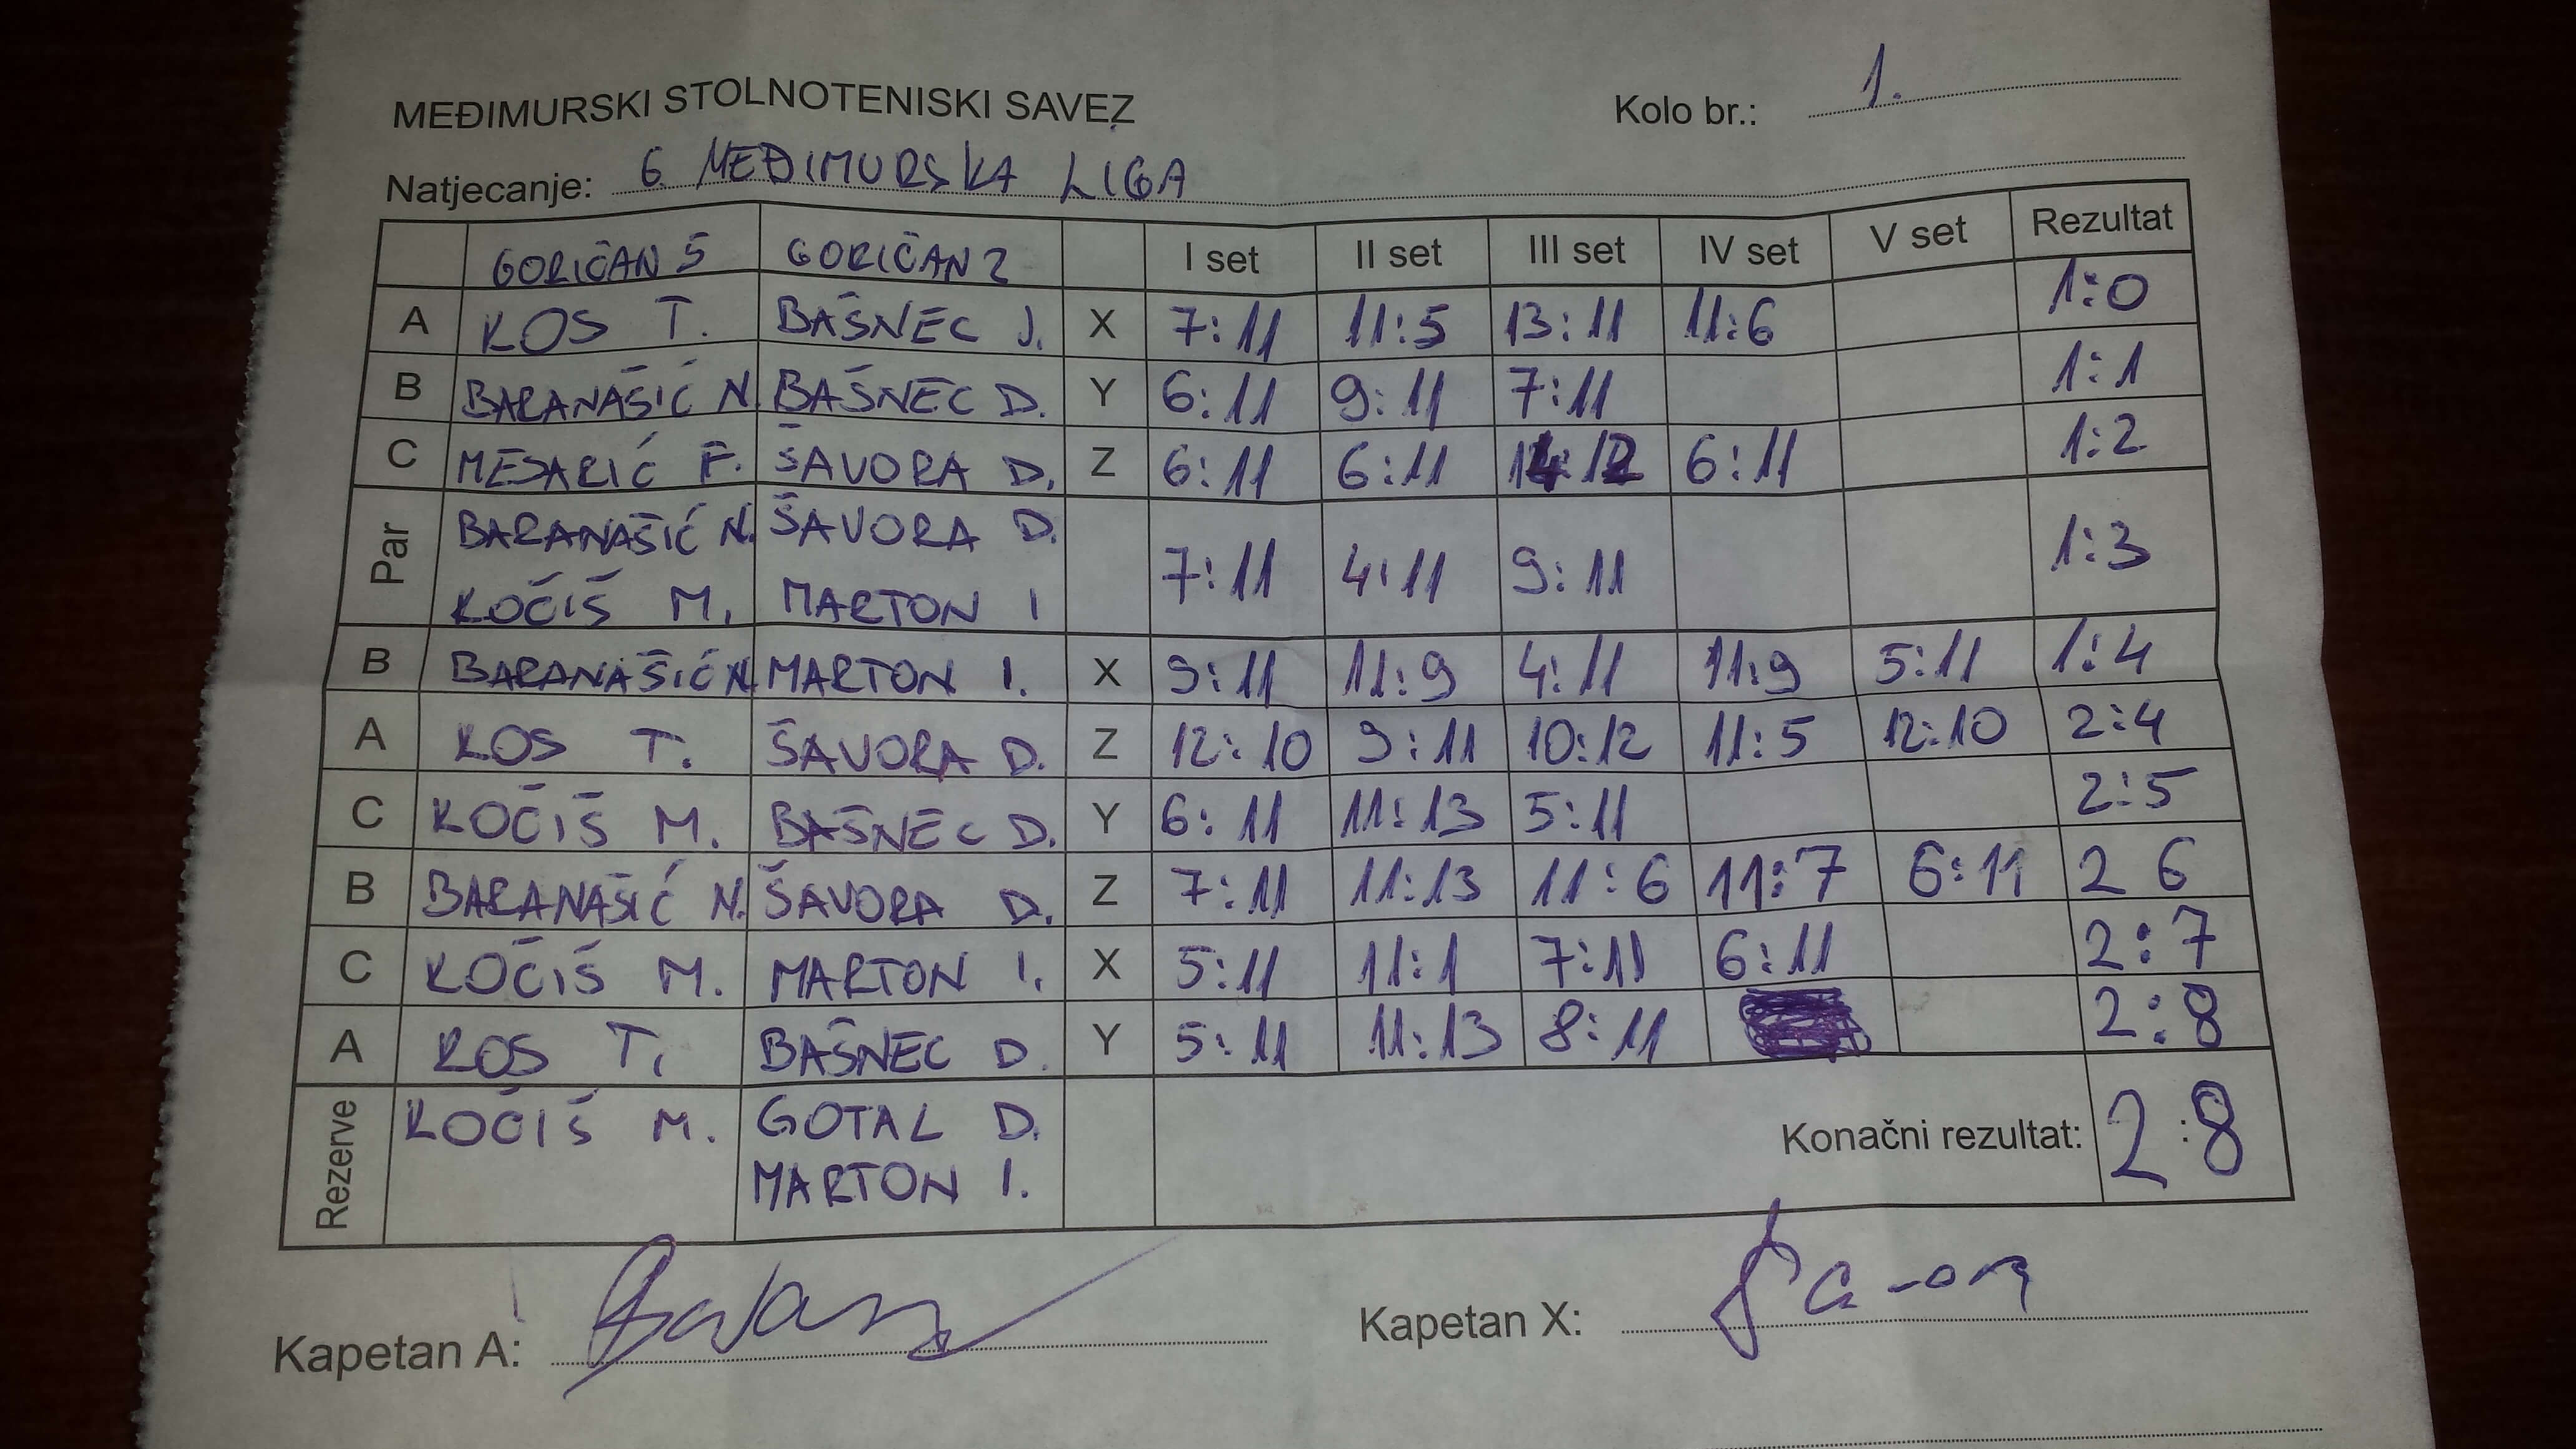 MEĐIMURSKI STOLNOTENISKI SAVEZ Kolo br.: 1.
Natjecanje: 6. MEĐIMURSKA LIGA
GORIČAN 5 GORIČAN 2 I set II set III set IV set V set Rezultat
A KOS T. BAŠNEC J. X 7:11 11:5 13:11 11:6 1:0
B BARANAŠIĆ N. BAŠNEC D. Y 6:11 9:11 7:11 1:1
C MESARIĆ F. ŠAVORA D. Z 6:11 6:11 14:12 6:11 1:2
Par BARANAŠIĆ N. ŠAVORA D. 7:11 4:11 9:11 1:3
KOČIŠ M. MARTON I
B BARANAŠIĆ N. MARTON I. X 9:11 11:9 4:11 11:9 5:11 1:4
A KOS T. ŠAVORA D. Z 12:10 9:11 10:12 11:5 12:10 2:4
C KOČIŠ M. BAŠNEC D. Y 6:11 11:13 5:11 2:5
B BARANAŠIĆ N. ŠAVORA D. Z 7:11 11:13 11:6 11:7 6:11 2 6
C KOČIŠ M. MARTON I. X 5:11 11:1 7:11 6:11 2:7
A KOS T. BAŠNEC D. Y 5:11 11:13 8:11 2:8
Rezerve KOČIŠ M. GOTAL D. Konačni rezultat: 2:8
MARTON I.
Kapetan A: Kapetan X: